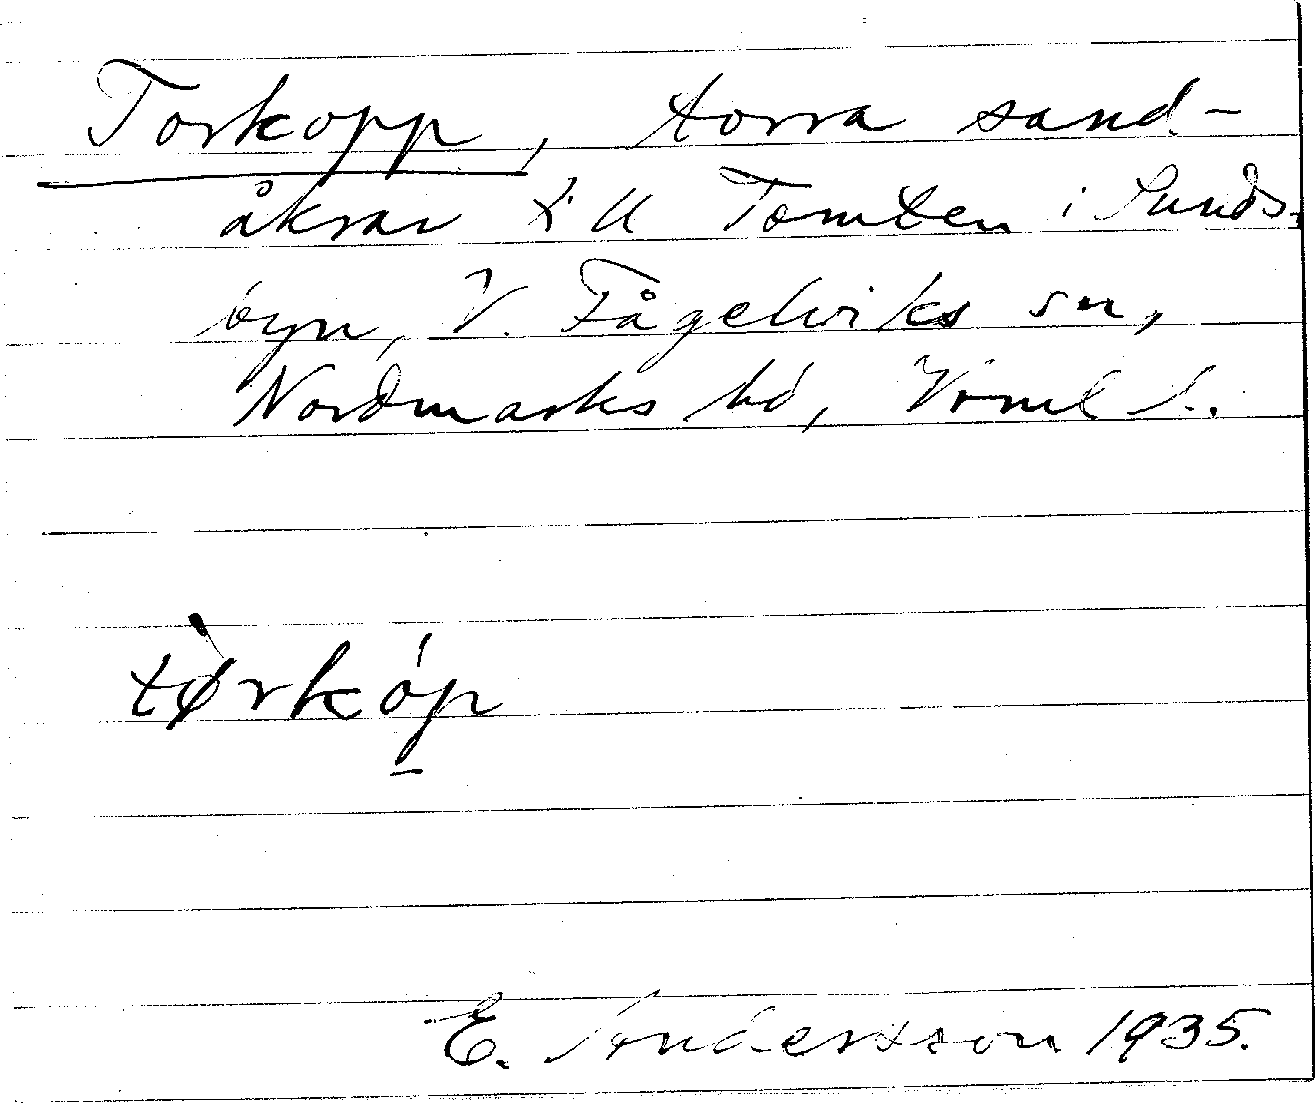 Torkopp, torra sand-
åkrar till Tomten i Sunds-
byn, V. Fågelviks sn,
Nordmarks hd, Värml l.
tørkóp
E. Andersson 1935.